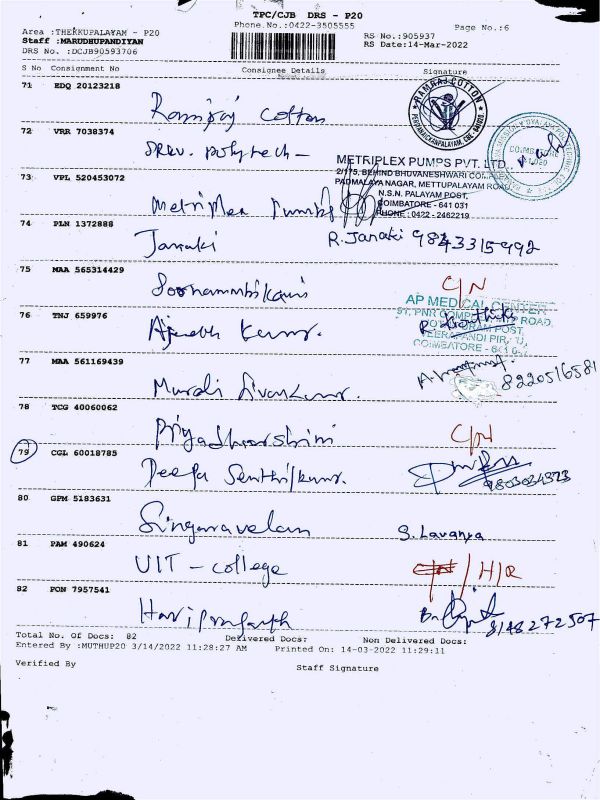 TPC/CJB DRS - P20
Phone No.:0422-3505555
Page No.:6
Area :THEKKUPALAYAM - P20
Staff :MARUDHUPANDIYAN
DRS No. :DCJB90593706
RS No.:905937
RS Date:14-Mar-2022
S No Consignment No Consignee Details Signature
71 EDQ 20123218
Ramraj Cotton
RAMRAJ COTTON
72 VRR 7038374
SREV. Polytech -
COIMBATORE
METRIPLEX PUMPS PVT. LTD.
2/175, BEHIND BHUVANESHWARI COMPLEX
PADMALAYA NAGAR, METTUPALAYAM ROAD
N.S.N. PALAYAM POST,
COIMBATORE - 641 031
PHONE : 0422 - 2462219
73 VPL 520453072
Metriplex Pumps
74 PLN 1372888
Janaki R. Janaki 9843315992
75 MAA 565314429
C/N
AP MEDICAL CENTER
ROAD,
POST,
COIMBATORE - 641
76 TNJ 659976
Kumar.
77 MAA 561169439
Murali Sivakumar.
8220516581
78 TCG 40060062
Priyadharshini C/N
79 CGL 60018785
Deepa Senthilkumar.
80 GPM 5183631
Singaravelan S. Lavanya
81 PAM 490624
UIT - College H/R
82 PON 7957541
Hariprasath 8148272507
Total No. Of Docs: 82 Delivered Docs: Non Delivered Docs:
Entered By :MUTHUP20 3/14/2022 11:28:27 AM Printed On: 14-03-2022 11:29:11
Verified By Staff Signature